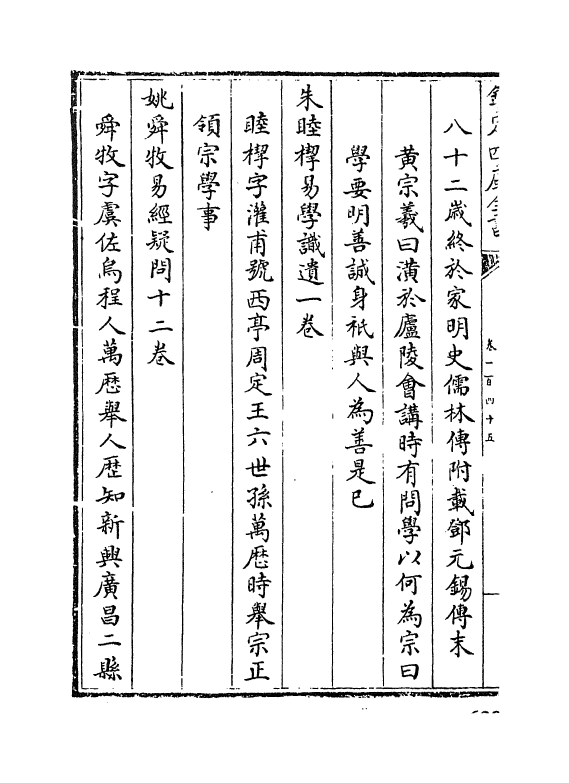 欽定四庫全書
卷一百四十五
八十二歳終於家明史儒林傳附載鄧元錫傳末
黄宗羲曰潢於廬陵會講時有問學以何為宗曰
學要明善誠身祇與人為善是已
朱睦㮮易學識遺一卷
睦㮮字灌甫號西亭周定王六世孫萬厯時舉宗正
領宗學事
姚舜牧易經疑問十二卷
舜牧字虞佐烏程人萬厯舉人歴知新興廣昌二縣